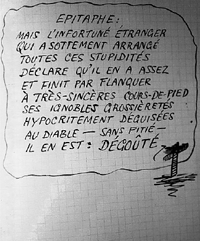 EPITAPHE:
MAIS L'INFORTUNÉ ÉTRANGER
QUI A SOTTEMENT ARRANGÉ
TOUTES CES STUPIDITÉS
DÉCLARE QU'IL EN A ASSEZ
ET FINIT PAR FLANQUER
À TRÈS-SINCÈRES COURS-DE-PIED
SES IGNOBLES GROSSIÈRETÉS
HYPOCRITEMENT DÉGUISÉES
AU DIABLE — SANS PITIÉ —
IL EN EST: DÉGOÛTÉ